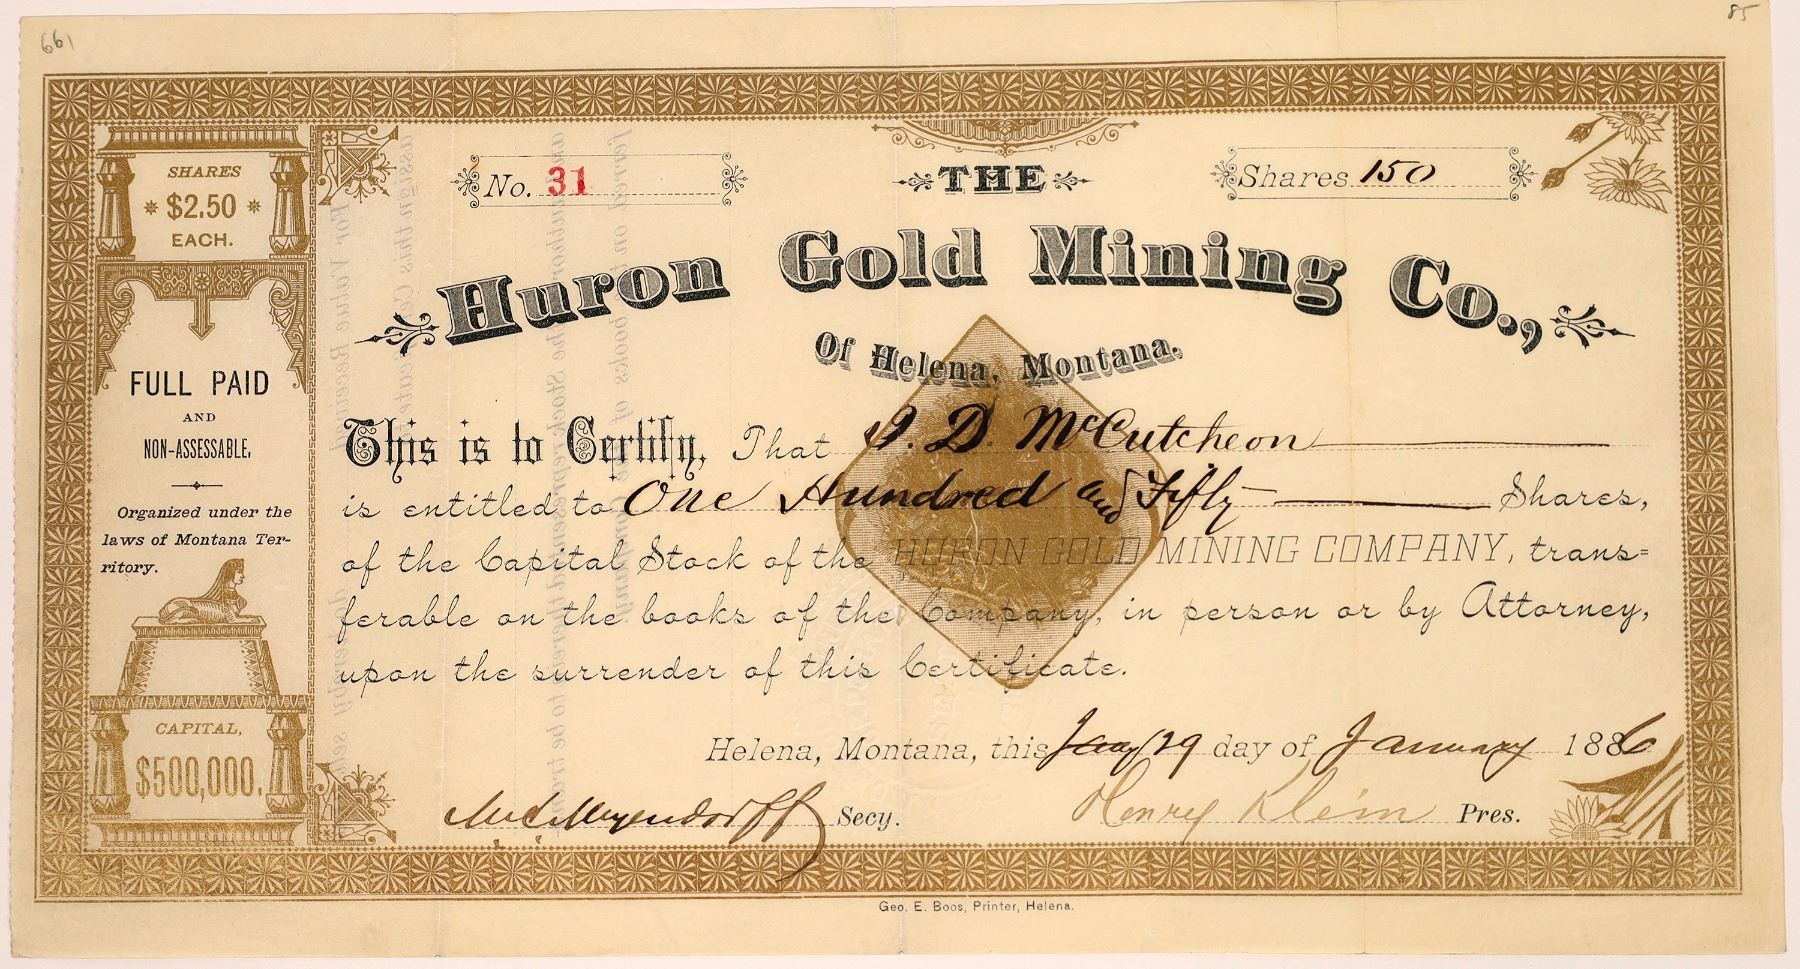 661
85
SHARES
$2.50
EACH.
FULL PAID
AND
NON-ASSESSABLE.
Organized under the
laws of Montana Ter-
ritory.
CAPITAL,
$500,000.
No. 31
THE
Shares 150
Huron Gold Mining Co.,
Of Helena, Montana.
This is to Certify, That D. McCutcheon
is entitled to One Hundred and Fifty Shares,
of the Capital Stock of the HURON GOLD MINING COMPANY, trans=
ferable on the books of the Company, in person or by Attorney,
upon the surrender of this Certificate.
Helena, Montana, this 29 day of January 1886
Meyendorff Secy.
Henry Klein Pres.
Geo. E. Boos, Printer, Helena.